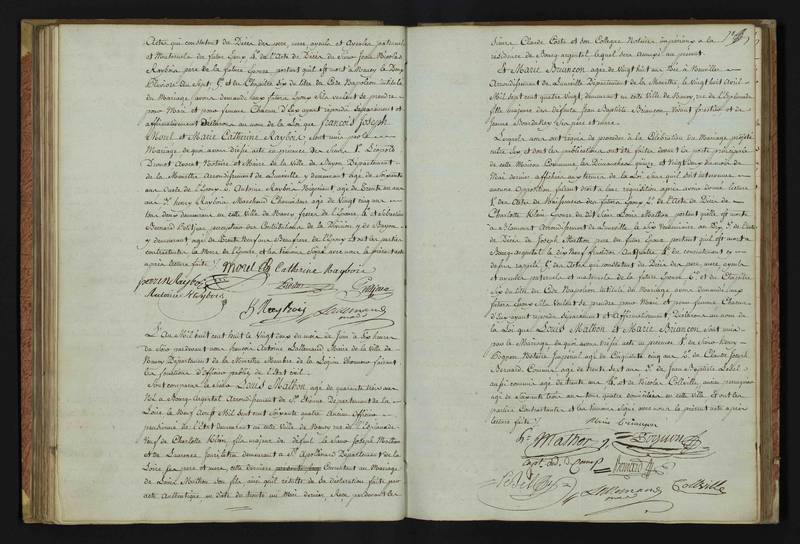 Actes qui constatent du Décès des père, mère, ayeuls et Ayeules paternels
et Maternels du futur Epoux, 4.° de l'Acte de Décès du Sieur Jean Nicolas
Raybois père de la future Epouse portant qu'il est mort à Nancy le
du Sept 5.° et du Chapitre Six du titre du Code Napoléon intitulé
du Mariage, avons demandé aux futurs Epoux s'ils veulent se prendre
pour Mari et pour femme Chacun d'eux ayant répondu séparément et
affirmativement Déclarons au nom de la Loi que François Joseph
Morel et Marie Catherine Raybois sont unis par le
Mariage, de quoi avons dressé acte en présence des Sieurs 1.° Léopold
Drouot Avocat Notaire et Maire de la Ville de Bayon, Département
de la Meurthe, Arrondissement de Lunéville y demeurant âgé de Soixante
ans Oncle de l'Epoux 2.° Antoine Raybois Négociant, âgé de trente un ans
3.° henry Raybois Marchand Chamoiseur âgé de Vingt cinq ans
tous deux demeurans en cette Ville de Nancy frères de l'Epouse, 4.° et Sébastien
Bernard percepteur des Contributions de la Division de Bayon
y demeurant âgé de trente Neuf ans Beau frère de l'Epoux Et ont les parties
contractantes la Mère de l'Epouse, et les témoins Signé avec nous le présent acte
après lecture faite
Morel Catherine Raybois
Raybois
Drouot
Antoine Raybois
h Raybois Lallemand
L'An Mil huit cent huit le Vingt deux du mois de Juin à Six heures
du Soir pardevant nous François Antoine Lallemand Maire de la Ville de
Nancy Département de la Meurthe Membre de la Légion d'honneur faisant
les fonctions d'Officier public de l'Etat civil.
Sont comparus le Sieur Louis Mathon âgé de quarante trois ans
Né à Bourg-Argental, Arrondissement de St. Etienne Département de la
Loire le Neuf Août Mil Sept cent Soixante quatre Ancien Officier
pensionné de l'Etat demeurant en cette Ville de Nancy rue de l'Esplanade
Veuf de Charlotte Klein, fils majeur de défunt le Sieur Joseph Mathon
et de demeurant à St. Apollinard Département de la
Loire ses père et mère, cette dernière Consentant au Mariage
de Louis Mathon son fils ainsi qu'il résulte de la déclaration faite par
acte Authentique en date du trente un Mai dernier, Reçu pardevant le
Sieur Claude Coste et son Collègue Notaires impériaux à la
résidence de Bourg argental lequel sera annexé au présent.
Et Marie Briançon âgée de Vingt huit ans Née à
Arrondissement de Lunéville Département de la Meurthe le Vingt huit Avril
Mil sept cent quatre Vingt, demeurant en cette Ville de Nancy, rue de l'Esplanade
fille majeure des défunts Jean Baptiste Briançon,
Jeanne ses père et mère.
Lesquels nous ont requis de procéder à la Célébration du Mariage projetté
entre Eux, et dont les publications ont été faites devant la porte principale
de cette Maison Commune, les Dimanches quinze et Vingt deux du mois de
Mai dernier affichées aux termes de la Loi sans qu'il soit intervenu
aucune Opposition faisant droit à leur réquisition après avoir donné lecture
1.° des Actes de Naissances des futurs Epoux 2.° de l'Acte de Décès de
Charlotte Klein Epouse du dit Sieur Louis Mathon portant qu'elle est morte
à Blamont Arrondissement de Lunéville, le Six Vendémiaire an Dix 3.° de l'acte
de Décès de Joseph Mathon père du futur Epoux portant qu'il est mort à
Bourg-argental, le dix Neuf An quatre 4.° du consentement
5.° des Actes qui constatent du Décès des père, mère, ayeuls
et ayeules paternels et maternels de la future Epouse 6.° et du Chapitre
Six du titre du Code Napoléon intitulé du Mariage, avons demandé aux
futurs Epoux s'ils Veulent se prendre pour Mari et pour femme Chacun
d'eux ayant répondu séparément et Affirmativement, Déclarons au nom de
la Loi que Louis Mathon et Marie Briançon sont unis
par le Mariage, de quoi avons dressé acte en présence 1.° du Sieur henry
Boquon Notaire Impérial âgé de Cinquante cinq ans 2.° de Claude Joseph
Bernard Commis âgé de trente Sept ans 3.° de Jean Baptiste Lebel
aussi commis âgé de trente un ans 4.° et de Nicolas Collville, ancien
âgé de Soixante trois ans tous quatre domiciliés en cette Ville. Et ont les
parties Contractantes et les témoins Signé avec nous le présent acte après
lecture faite.
Marie Briançon
Mathon Boquon
Bernard
Lebel
Lallemand Collville